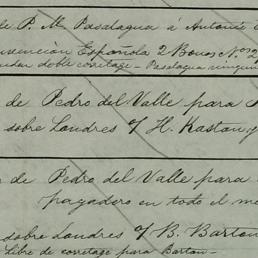 de P. M. Pasalagua á Antonio
Española 2 Bonos Nos 2
doble corretage - Pasalagua ningun
de Pedro del Valle para
sobre Londres o/ H. Kastan
de Pedro del Valle para
pagadero en todo el me
sobre Londres o/ B. Barton
Libre de corretage para Barton -